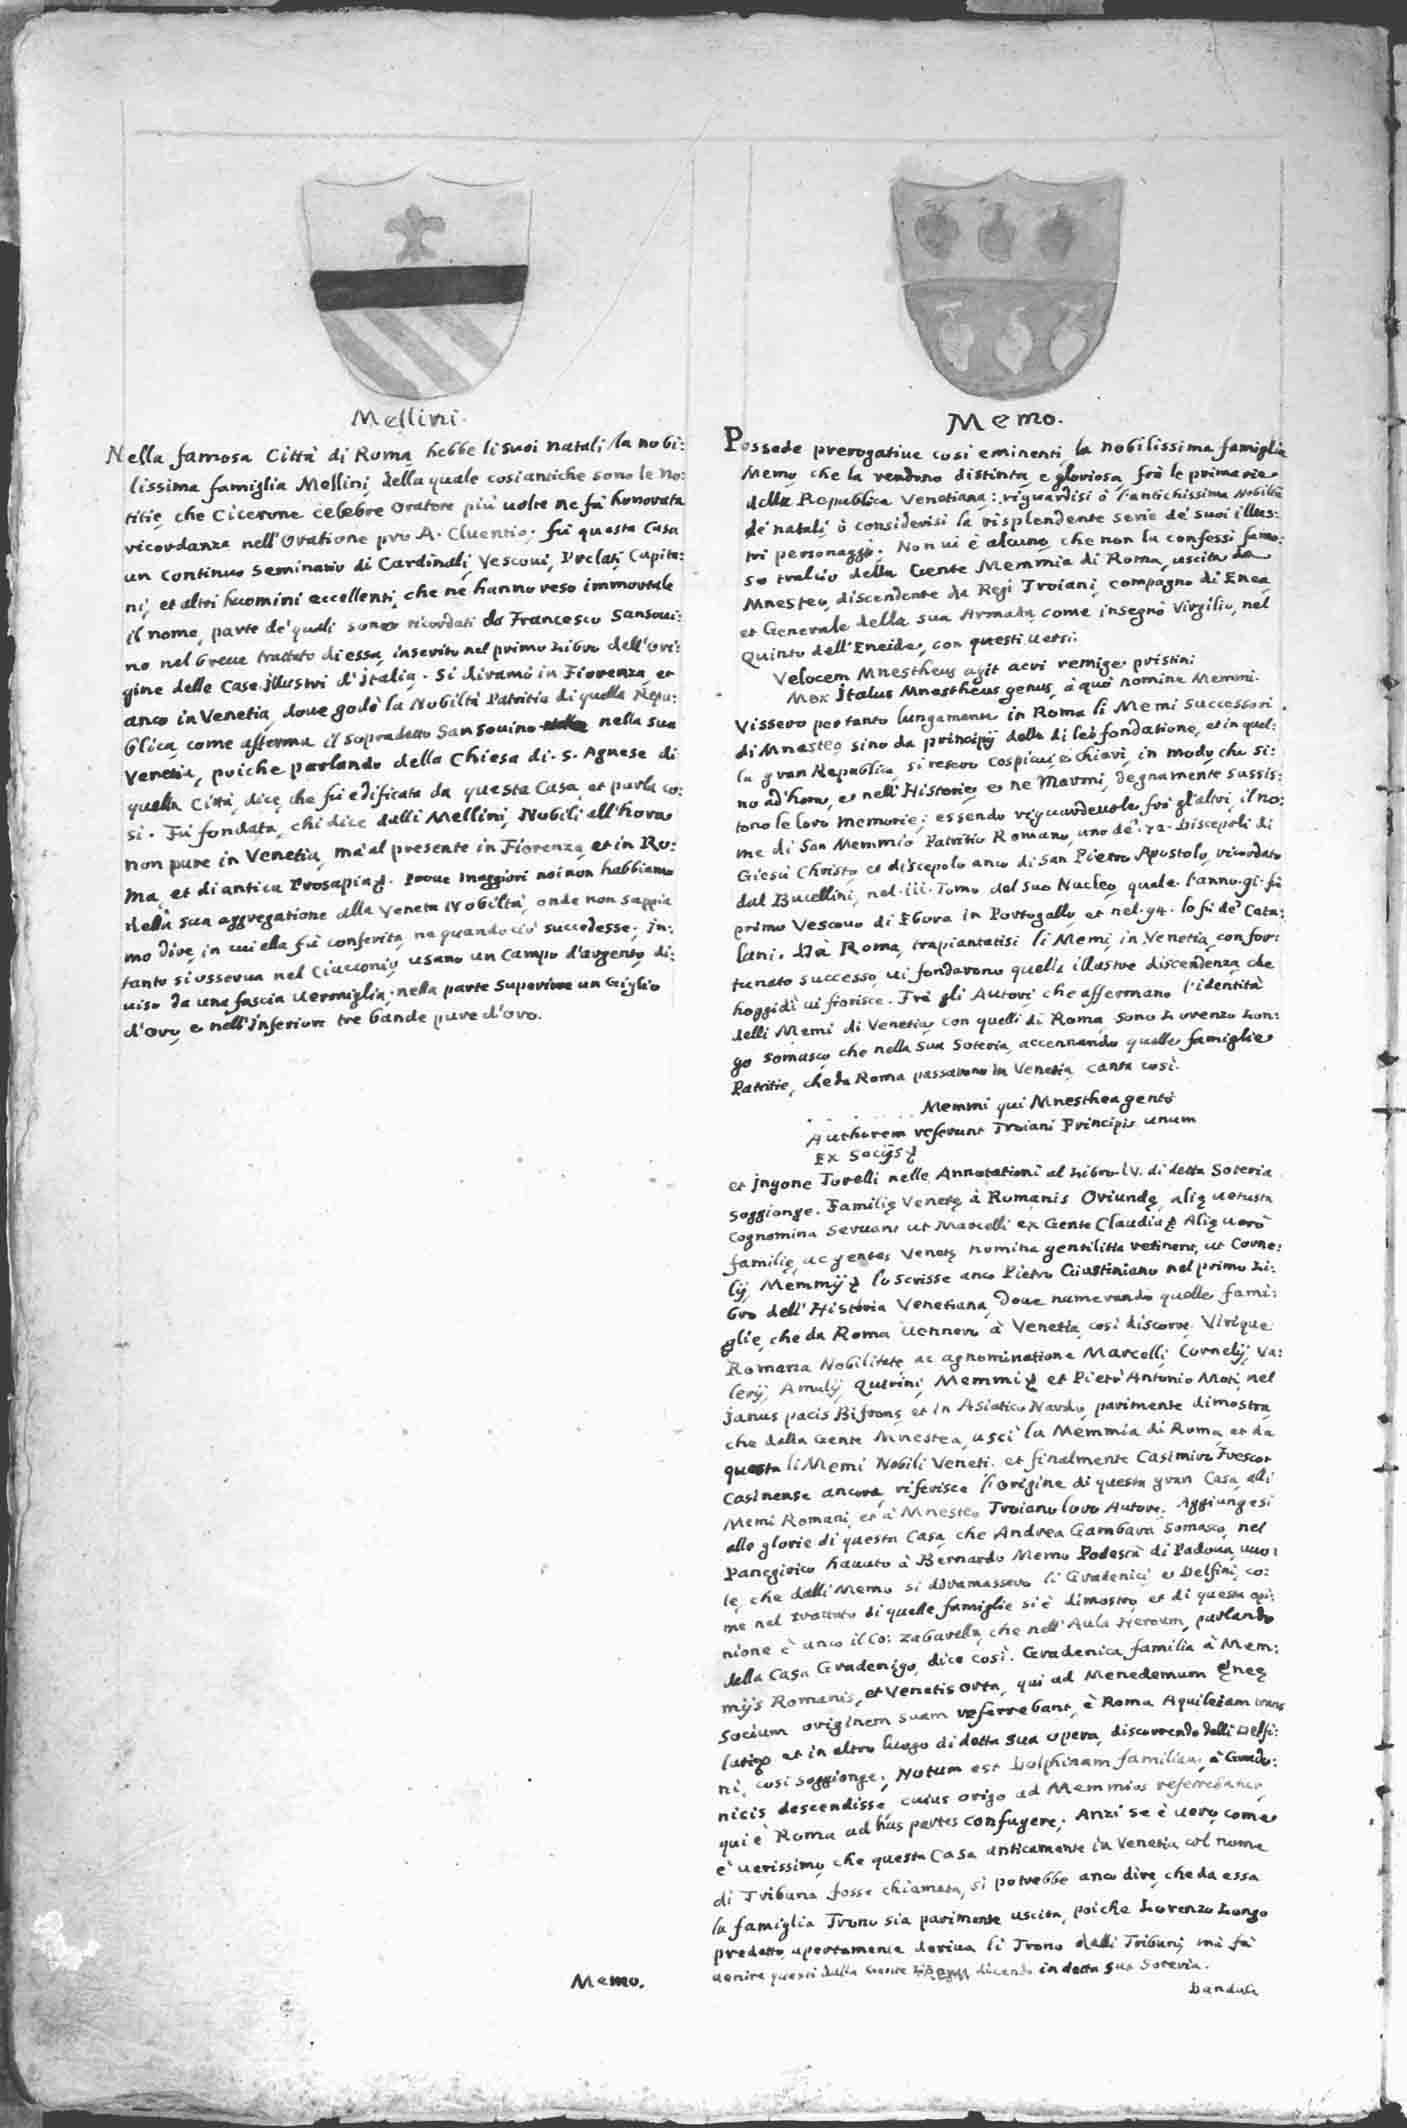 Mellini.
Nella famosa Città di Roma hebbe li suoi natali la nobi:
lissima famiglia Mellini, della quale cosi antiche sono le no:
titie, che Cicerone celebre Oratore più uolte ne fà honorata
ricordanza nell'Oratione pro A. Cluentio; fù questa Casa
un continuo seminario di Cardinali, Vescoui, Prelati, Capita:
ni, et altri huomini eccellenti, che ne hanno reso immortale
il nome, parte de' quali sono ricordati da Francesco Sansoui:
no nel breue trattato di essa, inserito nel primo Libro dell'ori:
gine delle Case jllustri d'jtalia. Si diramò in Fiorenza, et
anco in Venetia, doue godè la Nobiltà Patritia di quella Repu:
blica, come afferma il sopradetto Sansouino nella sua
Venetia, poiche parlando della Chiesa di S. Agnese di
quella Città, dice, che fù edificata da questa Casa, et parla co:
si. Fù fondata, chi dice dalli Mellini, Nobili all'hora
non pure in Venetia, mà al presente in Fiorenza, et in Ro:
ma, et di antica Prosapia. Proue maggiori noi non habbiamo
della sua aggregatione alla Veneta Nobiltà, onde non sappia
mo dire, in cui ella fù conferita, ne quando ciò succedesse; jn:
tanto si osserua nel Ciacconio, usano un Campo d'argento, di:
uiso da una fascia uermiglia; nella parte superiore un Giglio
d'oro, e nell'inferiore tre bande pure d'oro.
Memo.
Memo.
Possede prerogatiue cosi eminenti la nobilissima famiglia
Memo, che la rendono distinta, e gloriosa frà le primarie
della Republica Venetiana; riguardisi ò l'antichissima Nobiltà
de' natali, ò considerisi la risplendente serie de' suoi illus:
tri personaggi. Non ui è alcuno, che non la confessi famo:
so tralcio della Gente Memmia di Roma, uscita da
Mnesteo, discendente da Regi Troiani, compagno di Enea
et Generale della sua Armada, come insegnò Virgilio, nel
Quinto dell'Eneide, con questi uersi:
Velocem Mnestheus agit acri remige pristini
Mox jtalus Mnestheus genus, à quo nomine Memmi.
Vissero pertanto lungamente in Roma li Memi successori
di Mnesteo, sino da principij della di lei fondatione, et in quel:
la gran Republica, si resero cospicui, e chiari, in modo, che si:
no ad'hora, e nell'Historie, e ne' Marmi, degnamente sussis:
tono le loro memorie; essendo riguardeuole frà gl'altri, il no:
me di San Memmio Patritio Romano, uno de' 72. Discepoli di
Giesù Christo, et discepolo anco di San Pietro Apostolo, ricordato
dal Bucellini, nel iii. Tomo del suo Nucleo, quale l'anno 91. fù
primo Vescouo di Ebora in Portogallo, et nel 94. lo fù de' Cata:
lani. Dà Roma, trapiantatisi li Memi, in Venetia, con for:
tunato successo, ui fondarono quella illustre discendenza, che
hoggidì ui fiorisce. Frà gli Autori che affermano l'identità
delli Memi di Venetia, con quelli di Roma, sono Lorenzo Lon:
go Somasco, che nella sua Soteria, accennando quelle famiglie
Patritie, che da Roma passarono in Venetia, canta così.
Memmi qui Mnesthea gentis
Authorem referunt Troiani Principis unum
Ex Socijs
et jngone Torelli nelle Annotationi al Libro iv. di detta Soteria
soggionge. Familię Venetę à Romanis Oriundę, alię uetusta
Cognomina seruant ut Marcelli ex Gente Claudia Alię uerò
familię, ac gentes Venetę nomina gentilitia retinent, ut Corne:
lij, Memmij lo scrisse anco Pietro Giustiniano nel primo Li:
bro dell'Historia Venetiana, doue numerando quelle fami:
glie, che da Roma uennero à Venetia, cosi discorre. Virique
Romana Nobilitate, ac agnominatione Marcelli, Cornelij, Va:
lerij, Amulij, Quirini, Memmij et Pietr'Antonio Moti, nel
janus pacis Bifrons, et in Asiatico Nardo, parimente dimostra,
che dalla Gente Mnestea, uscì la Memmia di Roma, et da
questa li Memi Nobili Veneti. et finalmente Casimiro Frescot
Casinense ancora, riferisce l'origine di questa gran Casa, alli
Memi Romani, et à Mnesteo Troiano loro Autore. Aggiungesi
alle glorie di questa Casa, che Andrea Gambara Somasco, nel
Panegirico hauuto à Bernardo Memo Podestà di Padoua, uuo:
le, che dalli Memo si diramassero li Gradenici, e Delfini, co:
me nel trattato di quelle famiglie si è dimostro, et di questa opi:
nione è anco il Co: Zabarella, che nell'Aula Heroum, parlando
della Casa Gradenigo, dice così. Gradenica familia à Mem:
mijs Romanis, et Venetis orta, qui ad Menedemum Ęneę
socium originem suam referrebant, è Roma Aquileiam trans
latigo et in altro luogo di detta sua opera, discorrendo delli Delfi:
ni, cosi soggionge; Notum est Dolphinam familiam, à Grade:
nicis descendisse, cuius origo ad Memmios referrebatur,
qui è Roma ad has partes confugere; Anzi se è uero, come
è uerissimo, che questa Casa anticamente in Venetia col nome
di Tribuna fosse chiamata, si potrebbe anco dire, che da essa
la famiglia Trono sia parimente uscita, poiche Lorenzo Longo
predetto, apertamente deriua li Trono dalli Tribuni, mà fà
uenire questi dalla Gente dicendo in detta sua Soteria.
Danduli